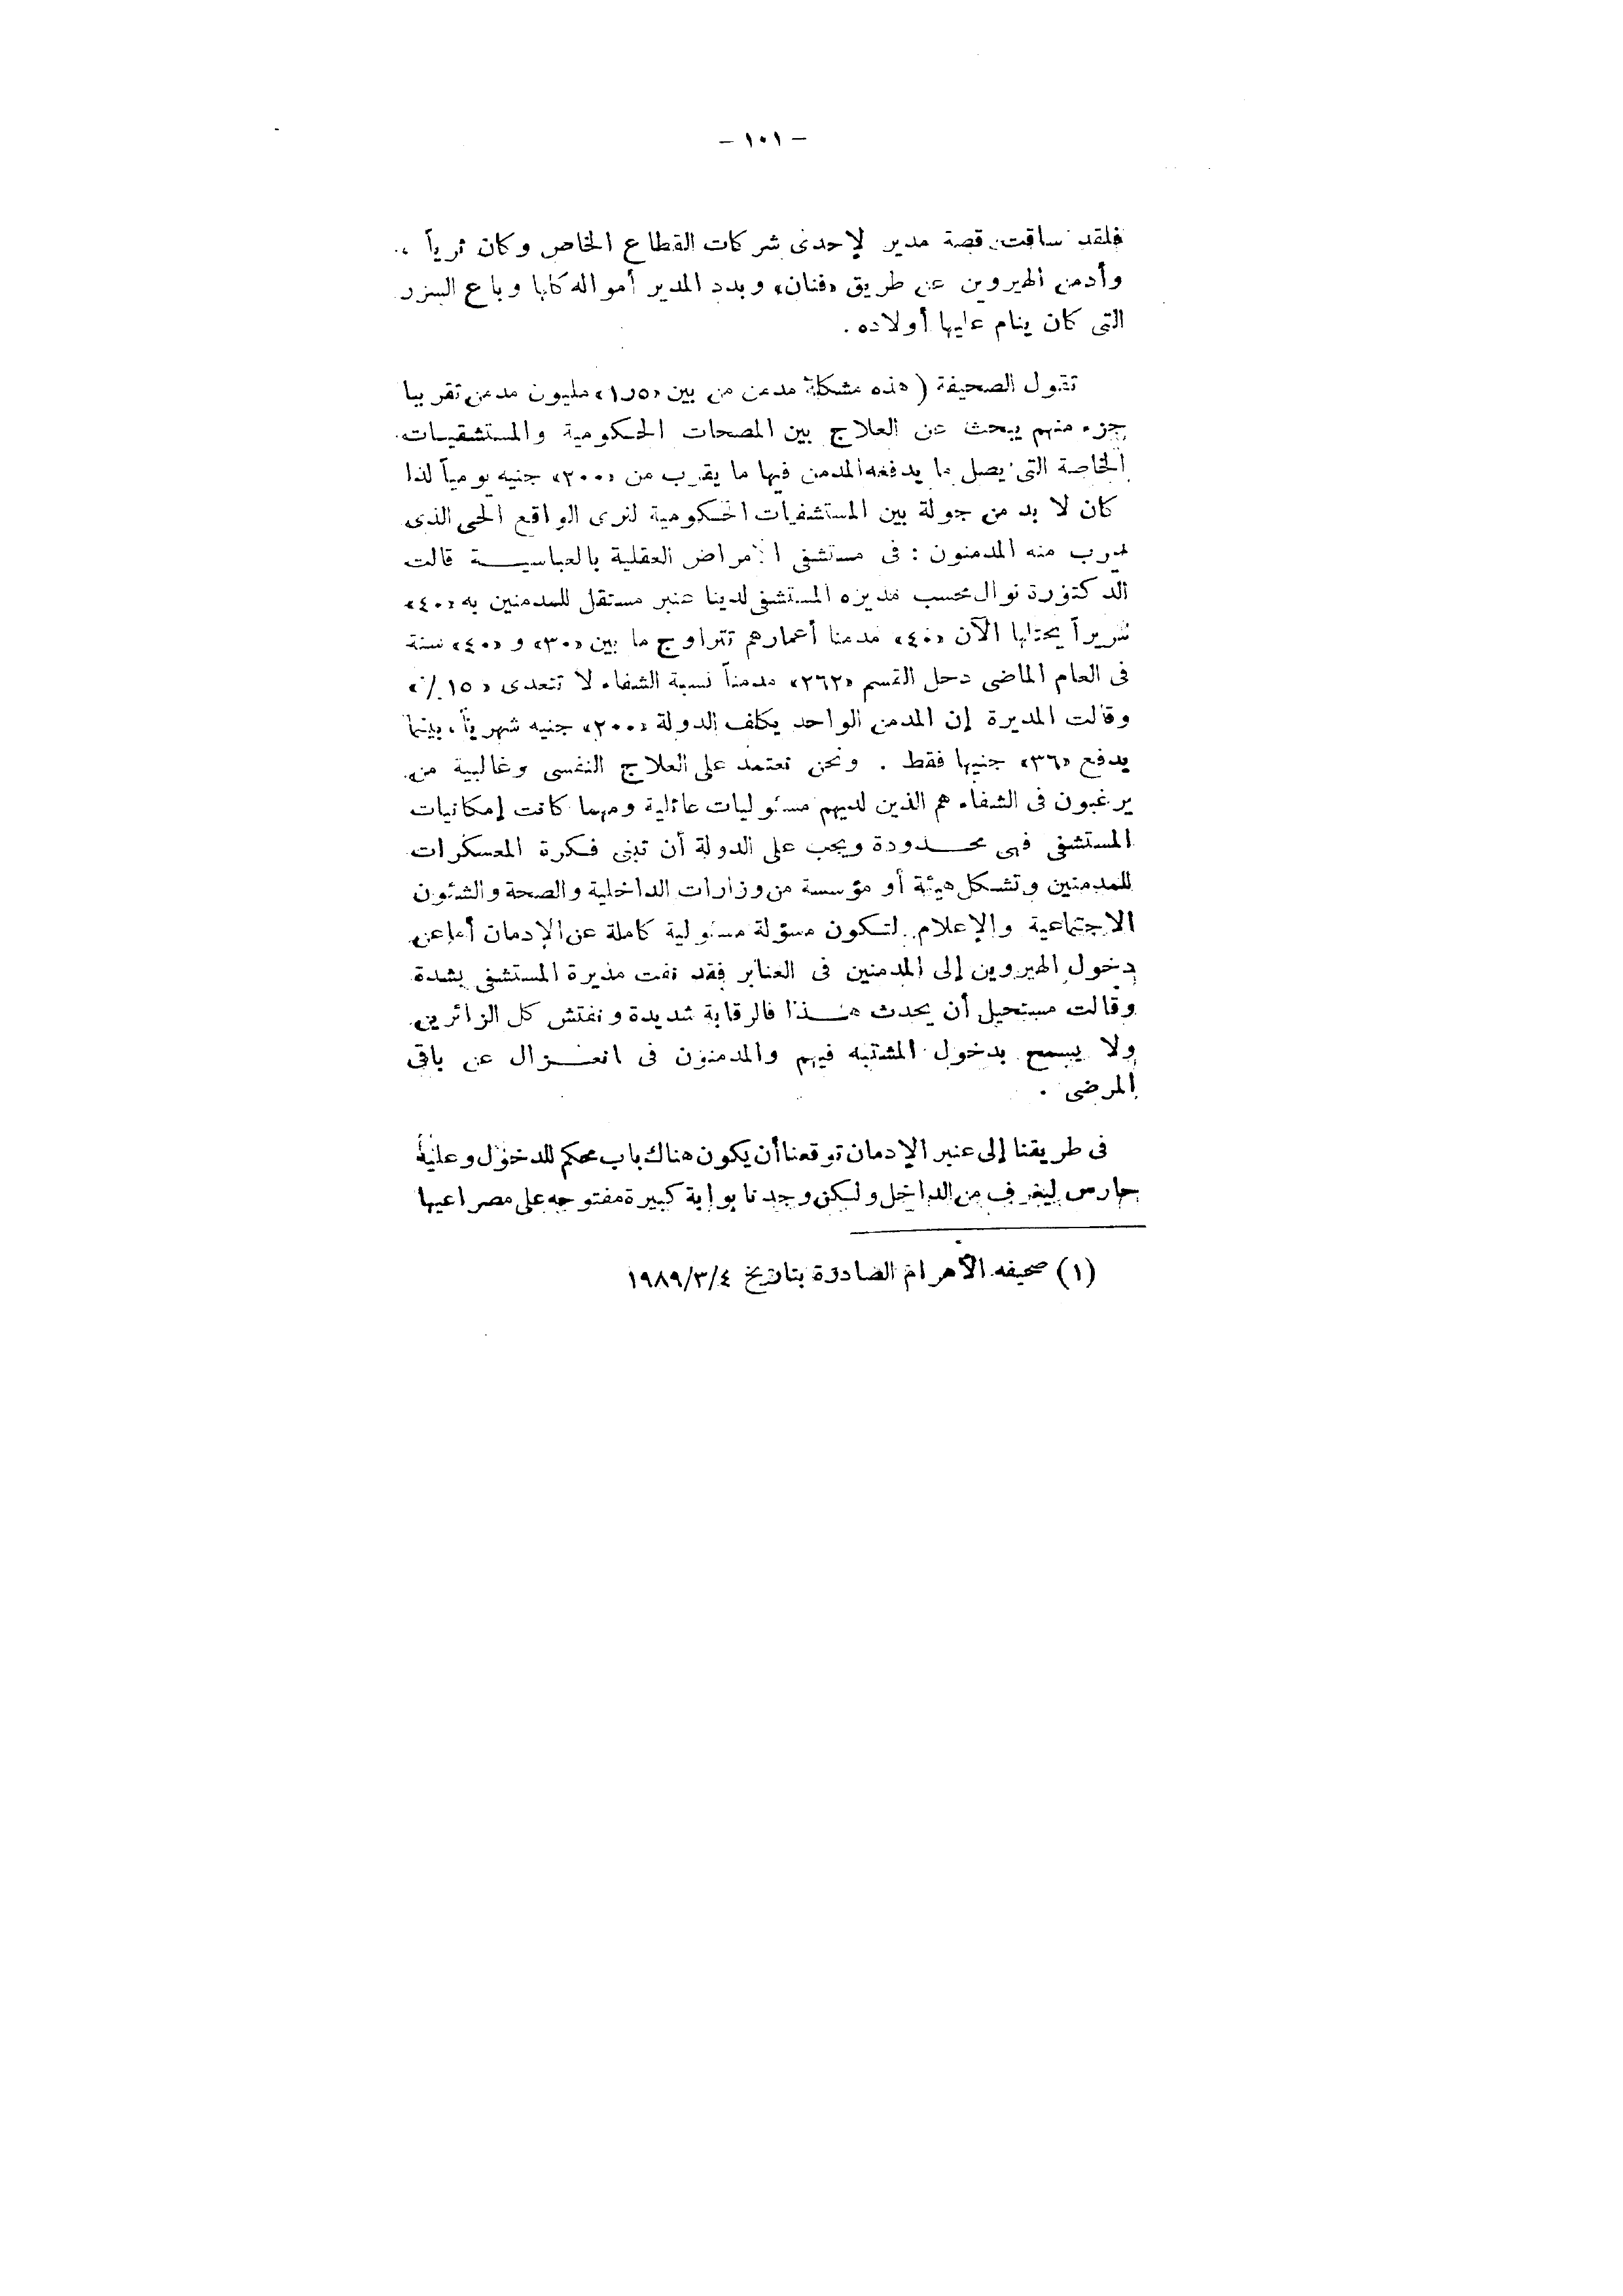 – ١٠١ –
فلقد ساقت قصة مدير لإحدى شركات القطاع الخاص وكان ثرياً ،
وأدمن الهيروين عن طريق «فنان» وبدد المدير أمواله كلها وباع السرر
التى كان ينام عليها أولاده .
تقول الصحيفة ( هذه مشكلة مدمن من بين «١٫٥» مليون مدمن تقريبا
جزء منهم يبحث عن العلاج بين المصحات الحكومية والمستشفيات
الخاصة التى يصل ما يدفعه المدمن فيها ما يقرب من «٢٠٠» جنيه يومياً لذا
كان لا بد من جولة بين المستشفيات الحكومية لنرى الواقع الحى الذى
يهرب منه المدمنون : فى مستشفى الأمراض العقلية بالعباسيـــة قالت
الدكتورة نوال محسب مديره المستشفى لدينا عنبر مستقل للمدمنين به «٤٠»
سريراً يحتلها الآن «٤٠» مدمنا أعمارهم تتراوح ما بين «٣٠» و «٤٠» سنة
فى العام الماضى دخل القسم «٢٦٢» مدمناً نسبة الشفاء لا تتعدى «١٥ ٪»
وقالت المديرة إن المدمن الواحد يكلف الدولة «٢٠٠» جنيه شهرياً ، بينما
يدفع «٣٦» جنيها فقط . ونحن نعتمد على العلاج النفسى وغالبية من
يرغبون فى الشفاء هم الذين لديهم مسئوليات عائلية ومهما كانت إمكانيات
المستشفى فهى محـــدودة ويجب على الدولة أن تبنى فكرة المعسكرات
للمدمنين وتشكل هيئة أو مؤسسة من وزارات الداخلية والصحة والشئون
الاجتماعية والإعلام لتكون مسؤلة مسئولية كاملة عن الإدمان أما عن
دخول الهيروين إلى المدمنين فى العنابر فقد نفت مديرة المستشفى بشدة
وقالت مستحيل أن يحدث هـــذا فالرقابة شديدة ونفتش كل الزائرين
ولا يسمح بدخول المشتبه فيهم والمدمنون فى انعـــزال عن باقى
المرضى .
فى طريقنا إلى عنبر الإدمان توقعنا أن يكون هناك باب محكم للدخول وعليه
حارس ليعرف من الداخل ولكن وجدنا بوابة كبيرة مفتوحه على مصراعيها
(١) صحيفه الأهرام الصادرة بتاريخ ١٩٨٩/٣/٤